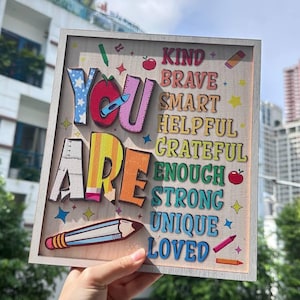 YOU
ARE
KIND
BRAVE
SMART
HELPFUL
GRATEFUL
ENOUGH
STRONG
UNIQUE
LOVED